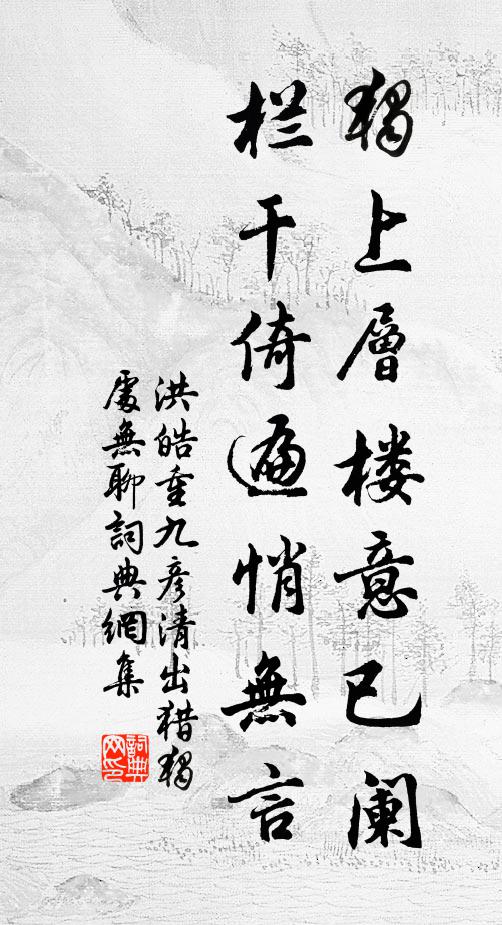 独上層楼意已阑
栏干倚遍悄無言
洪皓重九彦清出猎独
處無聊詞典網集
詞典
网印